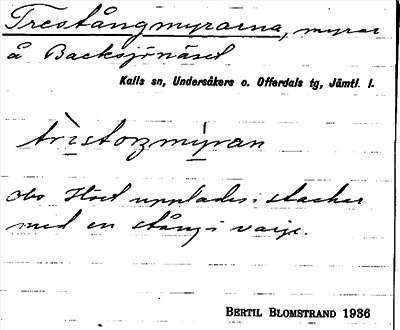 Trestångmyrarna, myrar
å Backsjönäset
Kalls sn, Undersåkers o. Offerdals tg, Jämtl. l.
trìstoŋmỳran
obs Höet upplades i stackar
med en stång i varje.
BERTIL BLOMSTRAND 1936